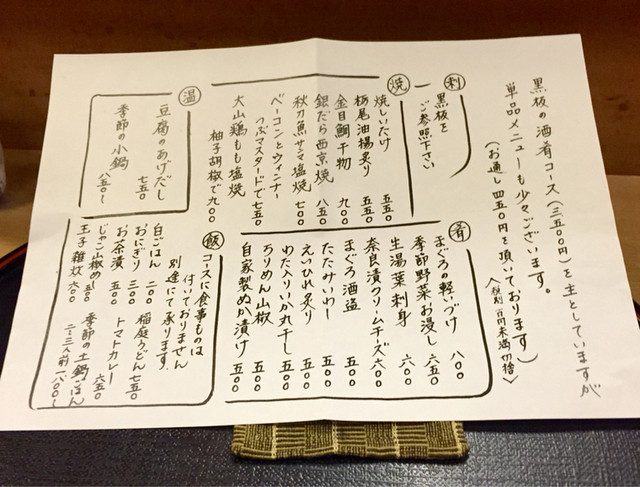 黒板の酒肴コース(三五〇〇円)を主としていますが
単品メニューも少々ございます。
(お通し四五〇円を頂いております)
〈税別 百円未満切捨〉
刺
黒板を
ご参照下さい
焼
焼しいたけ 五五〇
栃尾油揚炙り 五五〇
金目鯛干物 九〇〇
銀だら西京焼 八五〇
秋刀魚サンマ塩焼 七〇〇
ベーコンとウィンナー
つぶマスタードで 七五〇
大山鶏もも塩焼
柚子胡椒で 九〇〇
温
豆腐のあげだし 七五〇
季節の小鍋 八五〇〜
肴
まぐろの軽いづけ 八〇〇
季節野菜お浸し 六五〇
生湯葉刺身 六〇〇
奈良漬クリームチーズ 六〇〇
まぐろ酒盗 五〇〇
たたみいわし 五〇〇
えいひれ炙り 五〇〇
わた入りいか丸干し 五〇〇
ちりめん山椒 五〇〇
自家製ぬか漬け 五〇〇
飯
コースに食事ものは
付いておりません
別途にて承ります。
白ごはん 二〇〇
おにぎり 三〇〇
お茶漬 五五〇
じゃこ山椒めし 五五〇
玉子雑炊 六〇〇
稲庭うどん 七五〇
トマトカレー 六五〇
季節の土鍋ごはん
二・三人前 一八〇〇〜